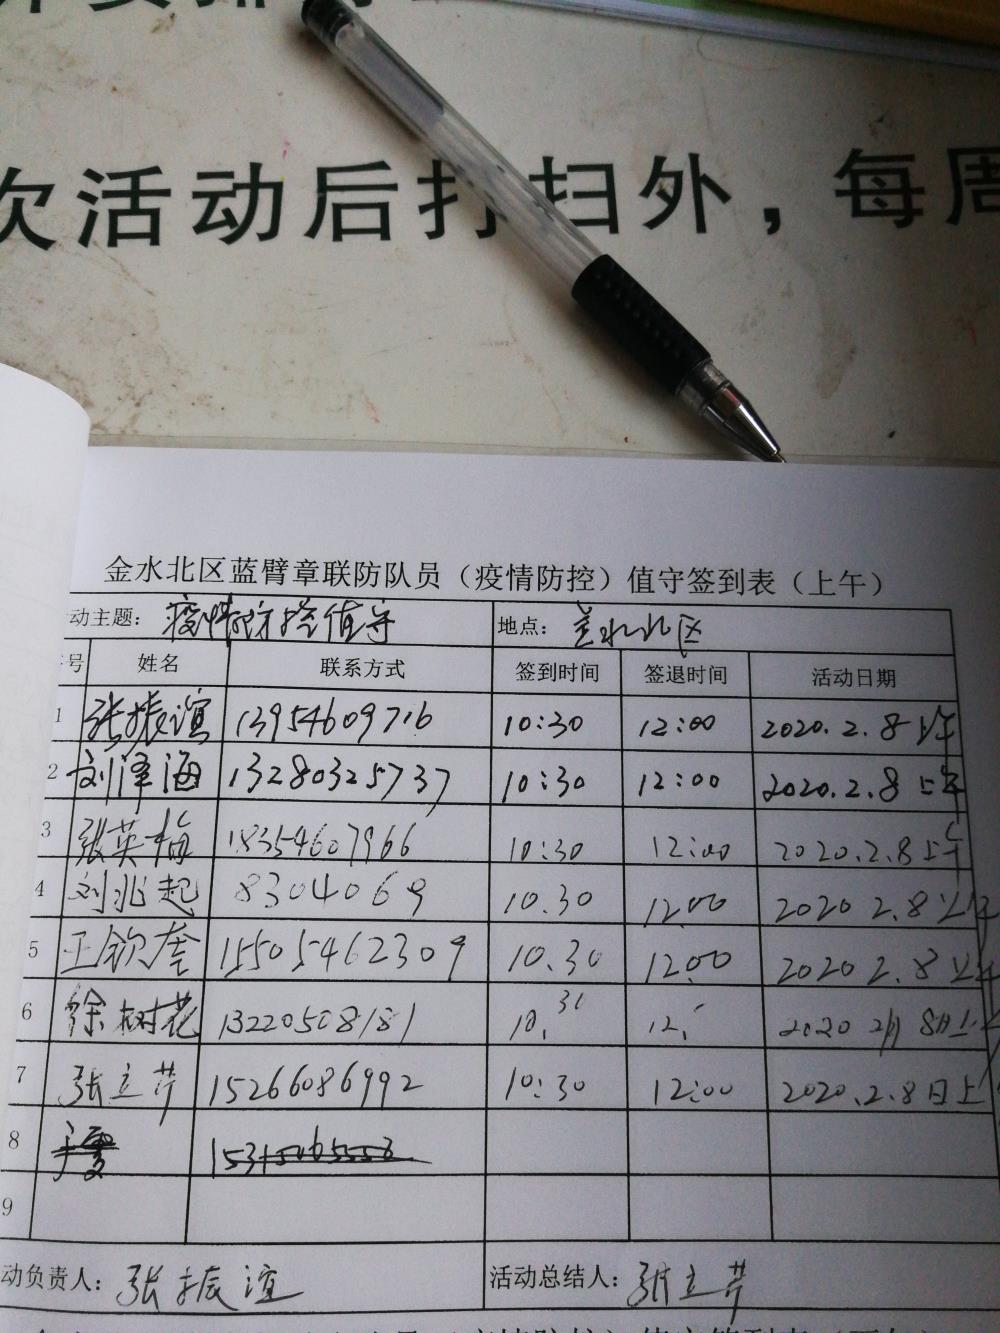 次活动后打扫外，每周
金水北区蓝臂章联防队员（疫情防控）值守签到表（上午）
动主题：疫情防控值守 地点：金水北区
号 姓名 联系方式 签到时间 签退时间 活动日期
1 张振谊 13954609716 10:30 12:00 2020.2.8 上午
2 刘泽海 13280325737 10:30 12:00 2020.2.8 上午
3 张英梅 18354607966 10:30 12:00 2020.2.8 上午
4 刘兆起 8304069 10.30 12.00 2020 2.8 上午
5 王钦奎 15505462309 10.30 12.00 2020 2.8 上午
6 徐树花 13220508181 10.30 12. 2020 2月8日上午
7 张立芹 15266086992 10:30 12:00 2020.2.8日上
8
9
动负责人：张振谊 活动总结人：张立芹